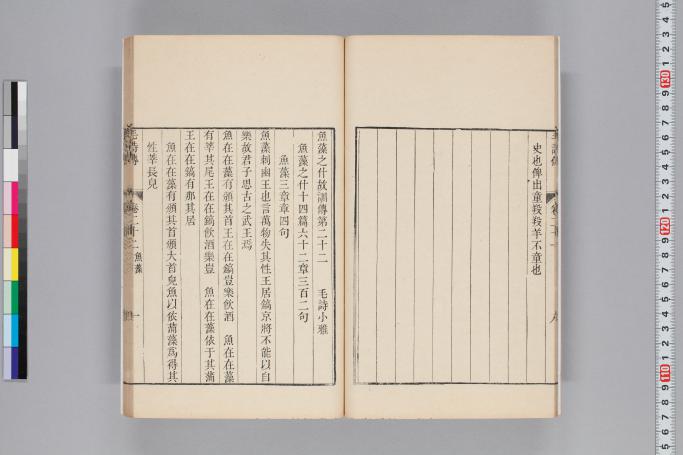 史也俾出童羖羖羊不童也
魚藻之什故訓傳第二十二　毛詩小雅
魚藻之什十四篇六十二章三百二句
魚藻三章章四句
魚藻刺幽王也言萬物失其性王居鎬京將不能以自
樂故君子思古之武王焉
魚在在藻有頒其首王在在鎬豈樂飲酒　魚在在藻
有莘其尾王在在鎬飲酒樂豈　魚在在藻依于其蒲
王在在鎬有那其居
魚在在藻有頒其首頒大首皃魚以依蒲藻爲得其
性莘長皃
毛詩傳　卷二十二魚藻　一
110
120
130